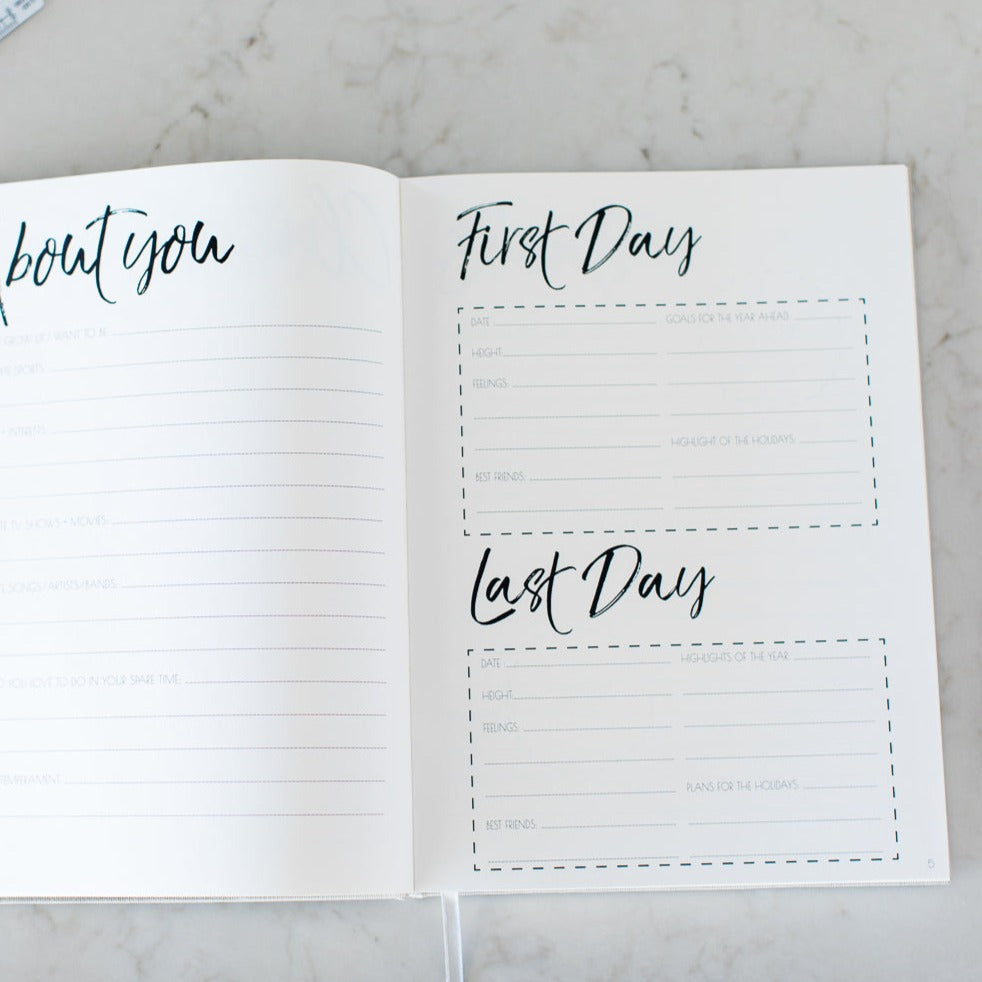 About you
GROW UP I WANT TO BE:
SPORTS:
+ INTERESTS:
TV SHOWS + MOVIES:
SONGS/ARTISTS/BANDS:
YOU LOVE TO DO IN YOUR SPARE TIME:
TEMPERAMENT:
First Day
DATE: GOALS FOR THE YEAR AHEAD:
HEIGHT:
FEELINGS:
HIGHLIGHT OF THE HOLIDAYS:
BEST FRIENDS:
Last Day
DATE: HIGHLIGHTS OF THE YEAR:
HEIGHT:
FEELINGS:
PLANS FOR THE HOLIDAYS:
BEST FRIENDS:
5